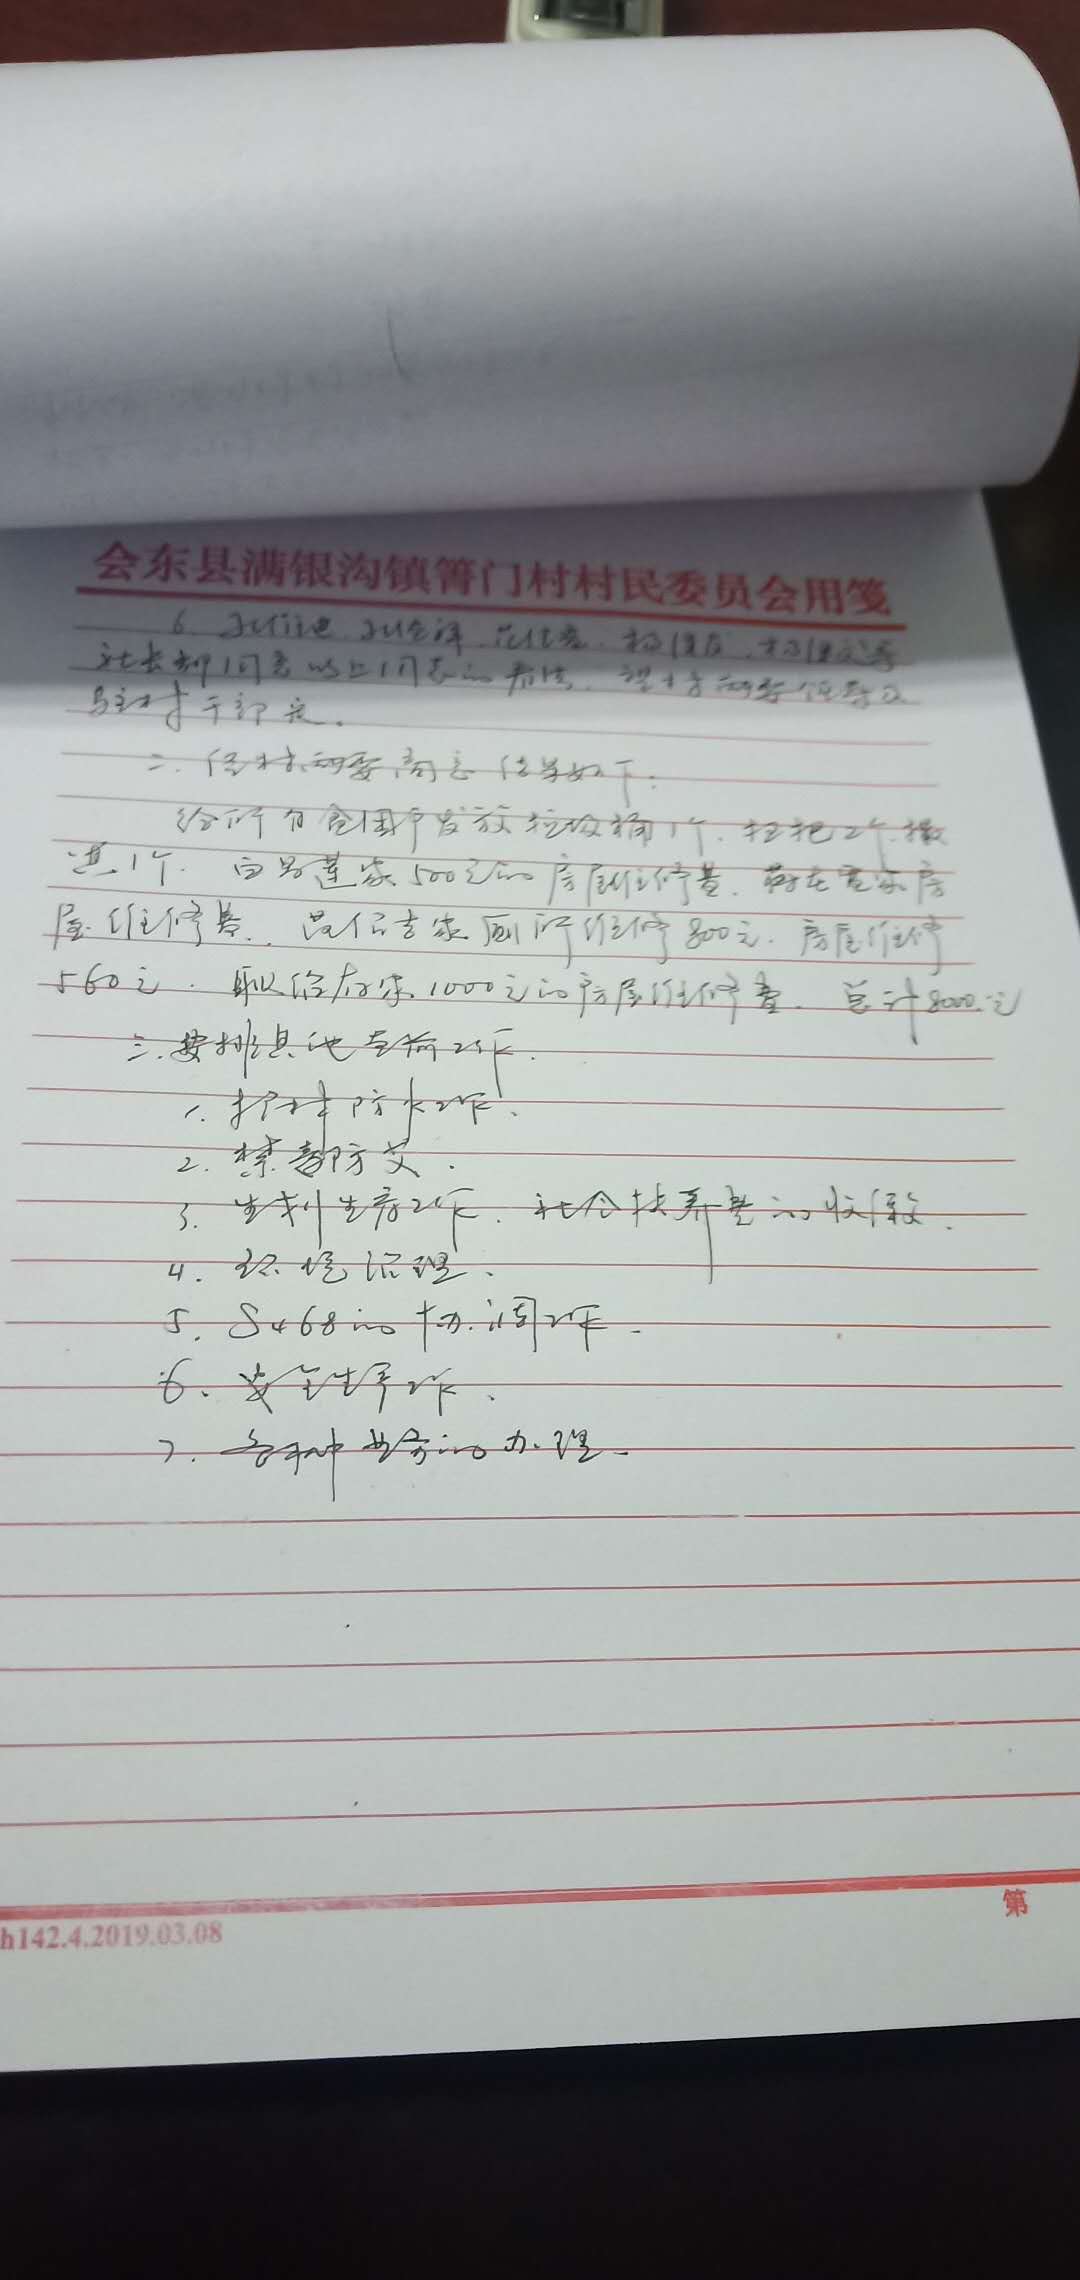 会东县满银沟镇箐门村村民委员会用笺
6.
社长都同意以上同志的
驻村干部定。
二、经村两委商议结果如下:
给所有贫困户发放垃圾桶1个、扫把2个、撮
箕1个. 500元的房屋维修费、房
屋维修费. 家厕所维修800元. 房屋维修
560元. 家1000元的房屋维修费. 总计8000元
三、安排其他当前工作.
1. 护林防火工作.
2. 禁毒防艾.
3. 计划生育工作、社会抚养费的收缴.
4. 环境治理.
5. S468的协调工作.
6. 安全生产工作.
7. 各种业务的办理.
h142.4.2019.03.08
第